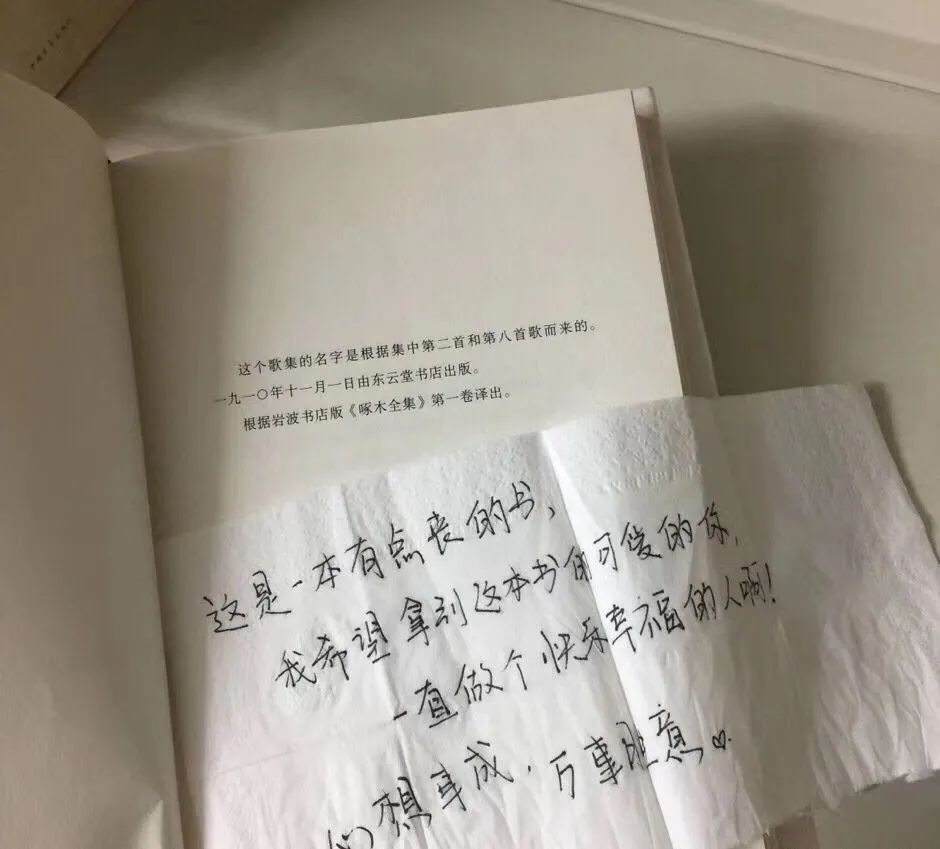 这个歌集的名字是根据集中第二首和第八首歌而来的。
一九一〇年十一月一日由东云堂书店出版。
根据岩波书店版《啄木全集》第一卷译出。
这是一本有点丧的书、
我希望拿到这本书的可爱的你,
一直做个快乐幸福的人啊!
心想事成,万事胜意♡.